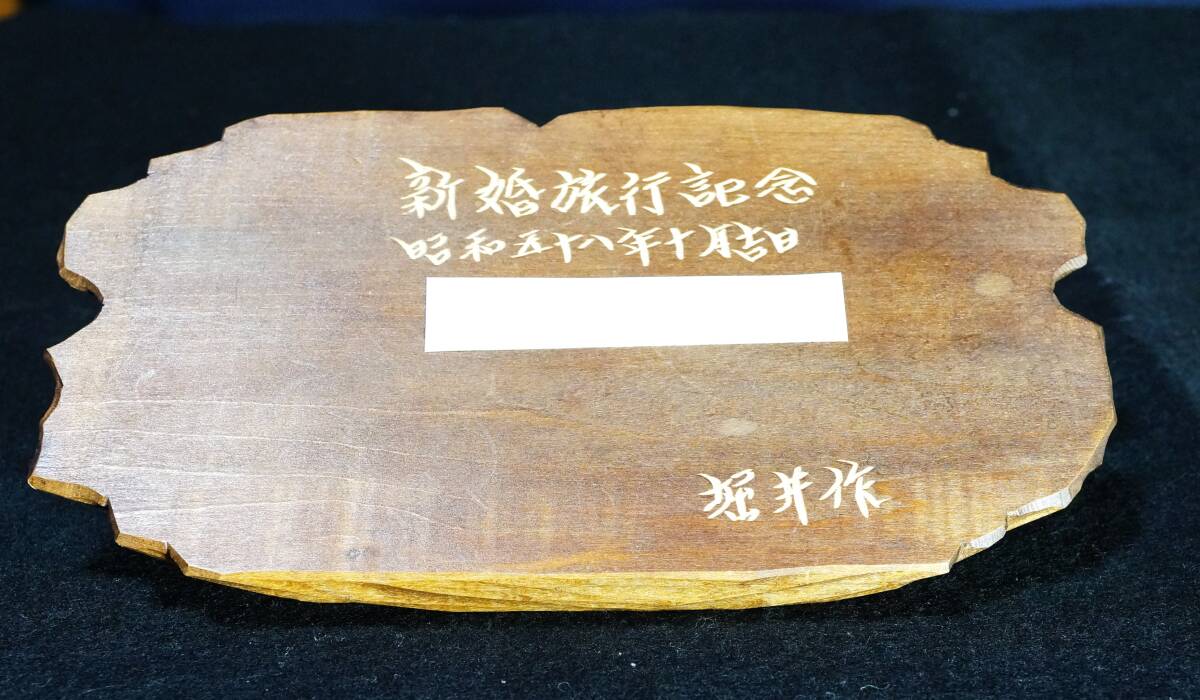 新婚旅行記念
昭和五十八年十月吉日
堀井作